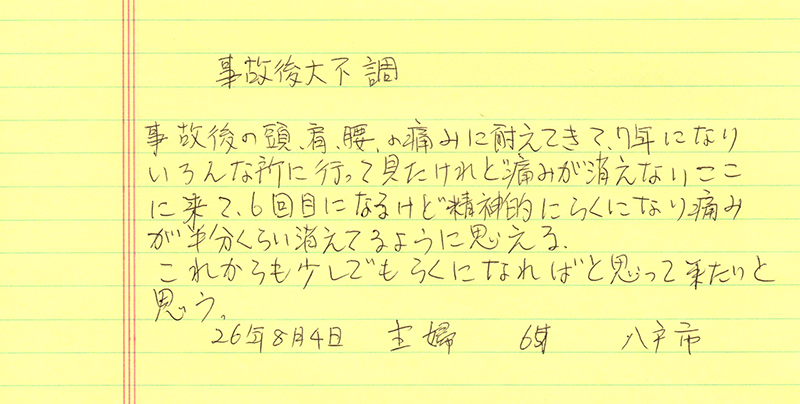 事故後大不調
事故後の頭、肩、腰、の痛みに耐えてきて、7年になり
いろんな所に行って見たけれど痛みが消えないここ
に来て、6回目になるけど精神的にらくになり痛み
が半分くらい消えてるように思える、
これからも少しでもらくになればと思って来たいと
思う。
26年8月4日 主婦 八戸市